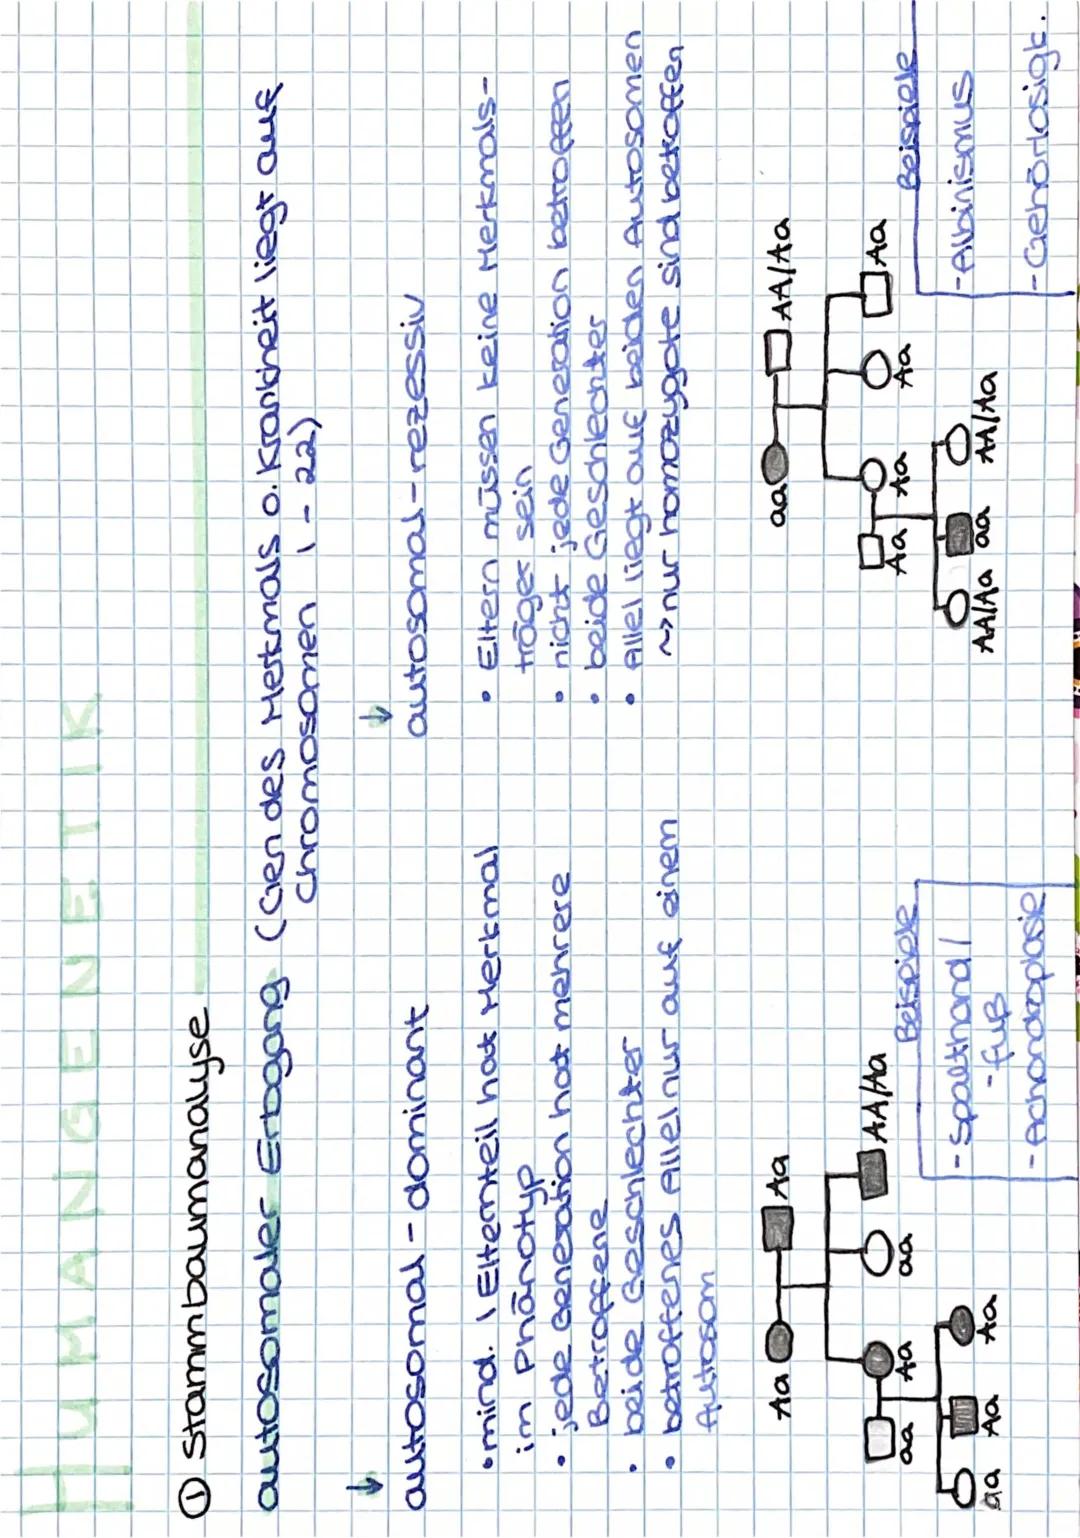 HUMANGENETIK
① Stammbaumanalyse
autosomaler Erbgang (Gen des Merkmals o. Krankheit liegt auf
Chromosomen 1 - 22)
↓
autosomal - dominant
• mind. 1 Elternteil hat Merkmal
im Phänotyp
• jede Generation hat mehrere
Betroffene
• beide Geschlechter
• betroffenes Allel nur auf einem
Autosom
Aa Aa
aa Aa aa AA/Aa
aa Aa Aa
Beispiele
- Spalthand/
-fuß
- Achondroplasie
↓
autosomal - rezessiv
• Eltern müssen keine Merkmals-
träger sein
• nicht jede Generation betroffen
• beide Geschlechter
• Allel liegt auf beiden Autosomen
~> nur homozygote sind betroffen
aa AA/Aa
Aa Aa Aa Aa
AA/Aa aa AA/Aa
Beispiele
- Albinismus
- Gehörlosigk.